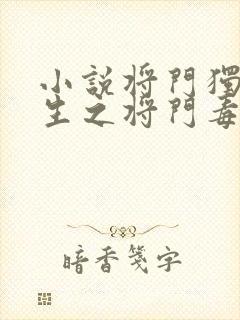 小説将門獨
生之将門毒
暗香箋字